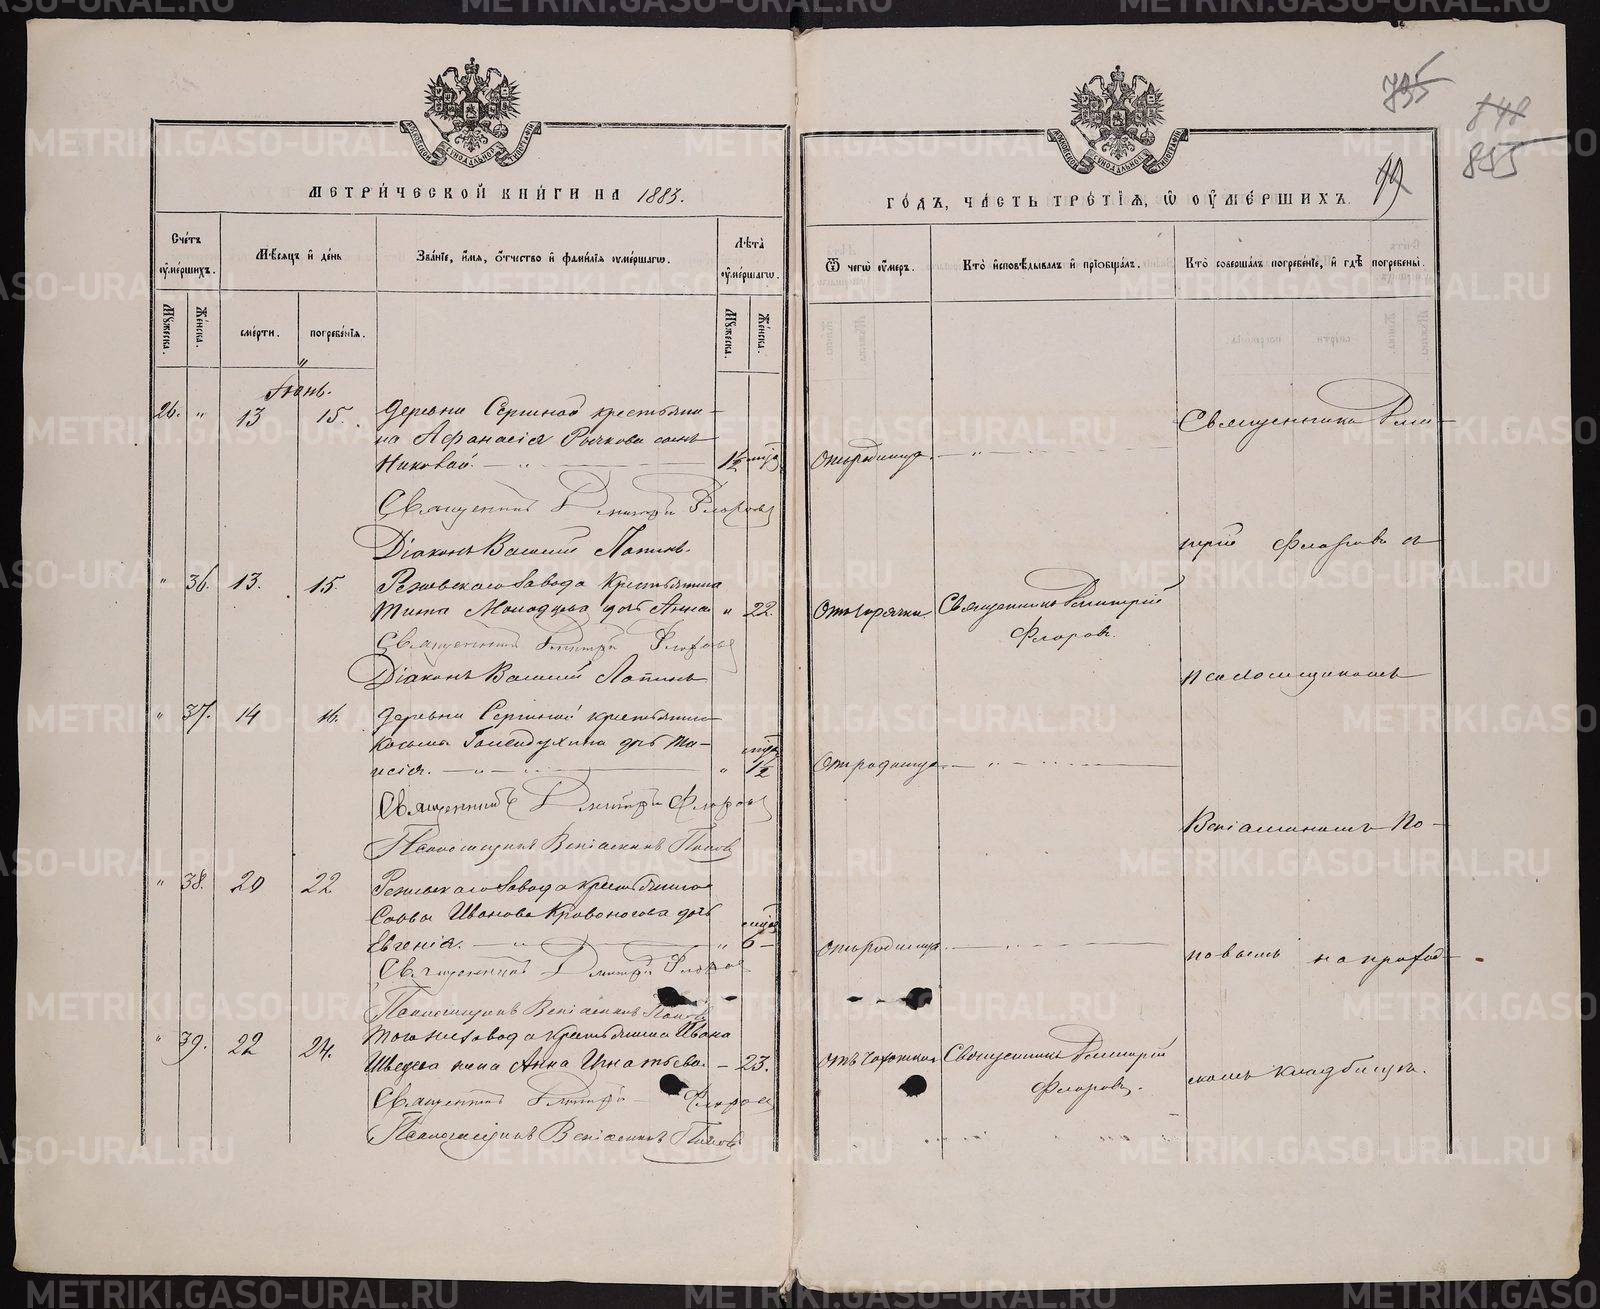 735
848
855
99
МЕТРИЧЕСКОЙ КНИГИ НА 1883.
ГОДЪ, ЧАСТЬ ТРЕТІЯ, Ѡ ОУМЕРШИХЪ.
Счетъ оумершихъ.
Мѣсяцъ и день
Званіе, имя, отчество и фамилія оумершагѡ.
Лѣта оумершагѡ.
Ѿ чегѡ оумеръ.
Кто исповѣдывалъ и пріобщалъ.
Кто совершалъ погребеніе, и гдѣ погребены.
Мужеска.
Женска.
смерти.
погребенія.
Мужеска.
Женска.
Іюнь.
26. " 13 15. Деревни Сергиной крестьяни-
на Афанасія Рычкова сынъ
Николай. 1½ мѣс. Отъ родимца.
Священникъ Димитрій Флоровъ
Діаконъ Василий Лапинъ.
" 36. 13. 15. Режевскаго завода крестьянина
Тита Молодцова дочь Анна " 22. Отъ горячки. Священникъ Димитрій
Флоровъ.
Священникъ Димитрій Флоровъ
Діаконъ Василий Лапинъ
" 37. 14 16. Деревни Сергиной крестьянина
Косьмы Голендухина дочь Та-
исія. " 1½ Отъ родимца.
Священникъ Димитрій Флоровъ
Псаломщикъ Веніаминъ Поповъ
" 38. 20 22 Режевскаго завода крестьянина
Саввы Иванова Кривоногова дочь
Евгенія. " 6 Отъ родимца.
Священникъ Димитрій Флоровъ
Псаломщикъ Веніаминъ Поповъ
" 39. 22 24. Того же завода крестьянина Ивана
Швецова жена Анна Игнатьева. – 23. отъ чахотки Священникъ Димитрій
Флоровъ.
Священникъ Димитрій Флоровъ
Псаломщикъ Веніаминъ Поповъ
Священникъ Дми-
трій Флоровъ съ
псаломщикомъ
Веніаминомъ По-
повымъ на приход-
скомъ кладбищѣ.
METRIKI.GASO-URAL.RU